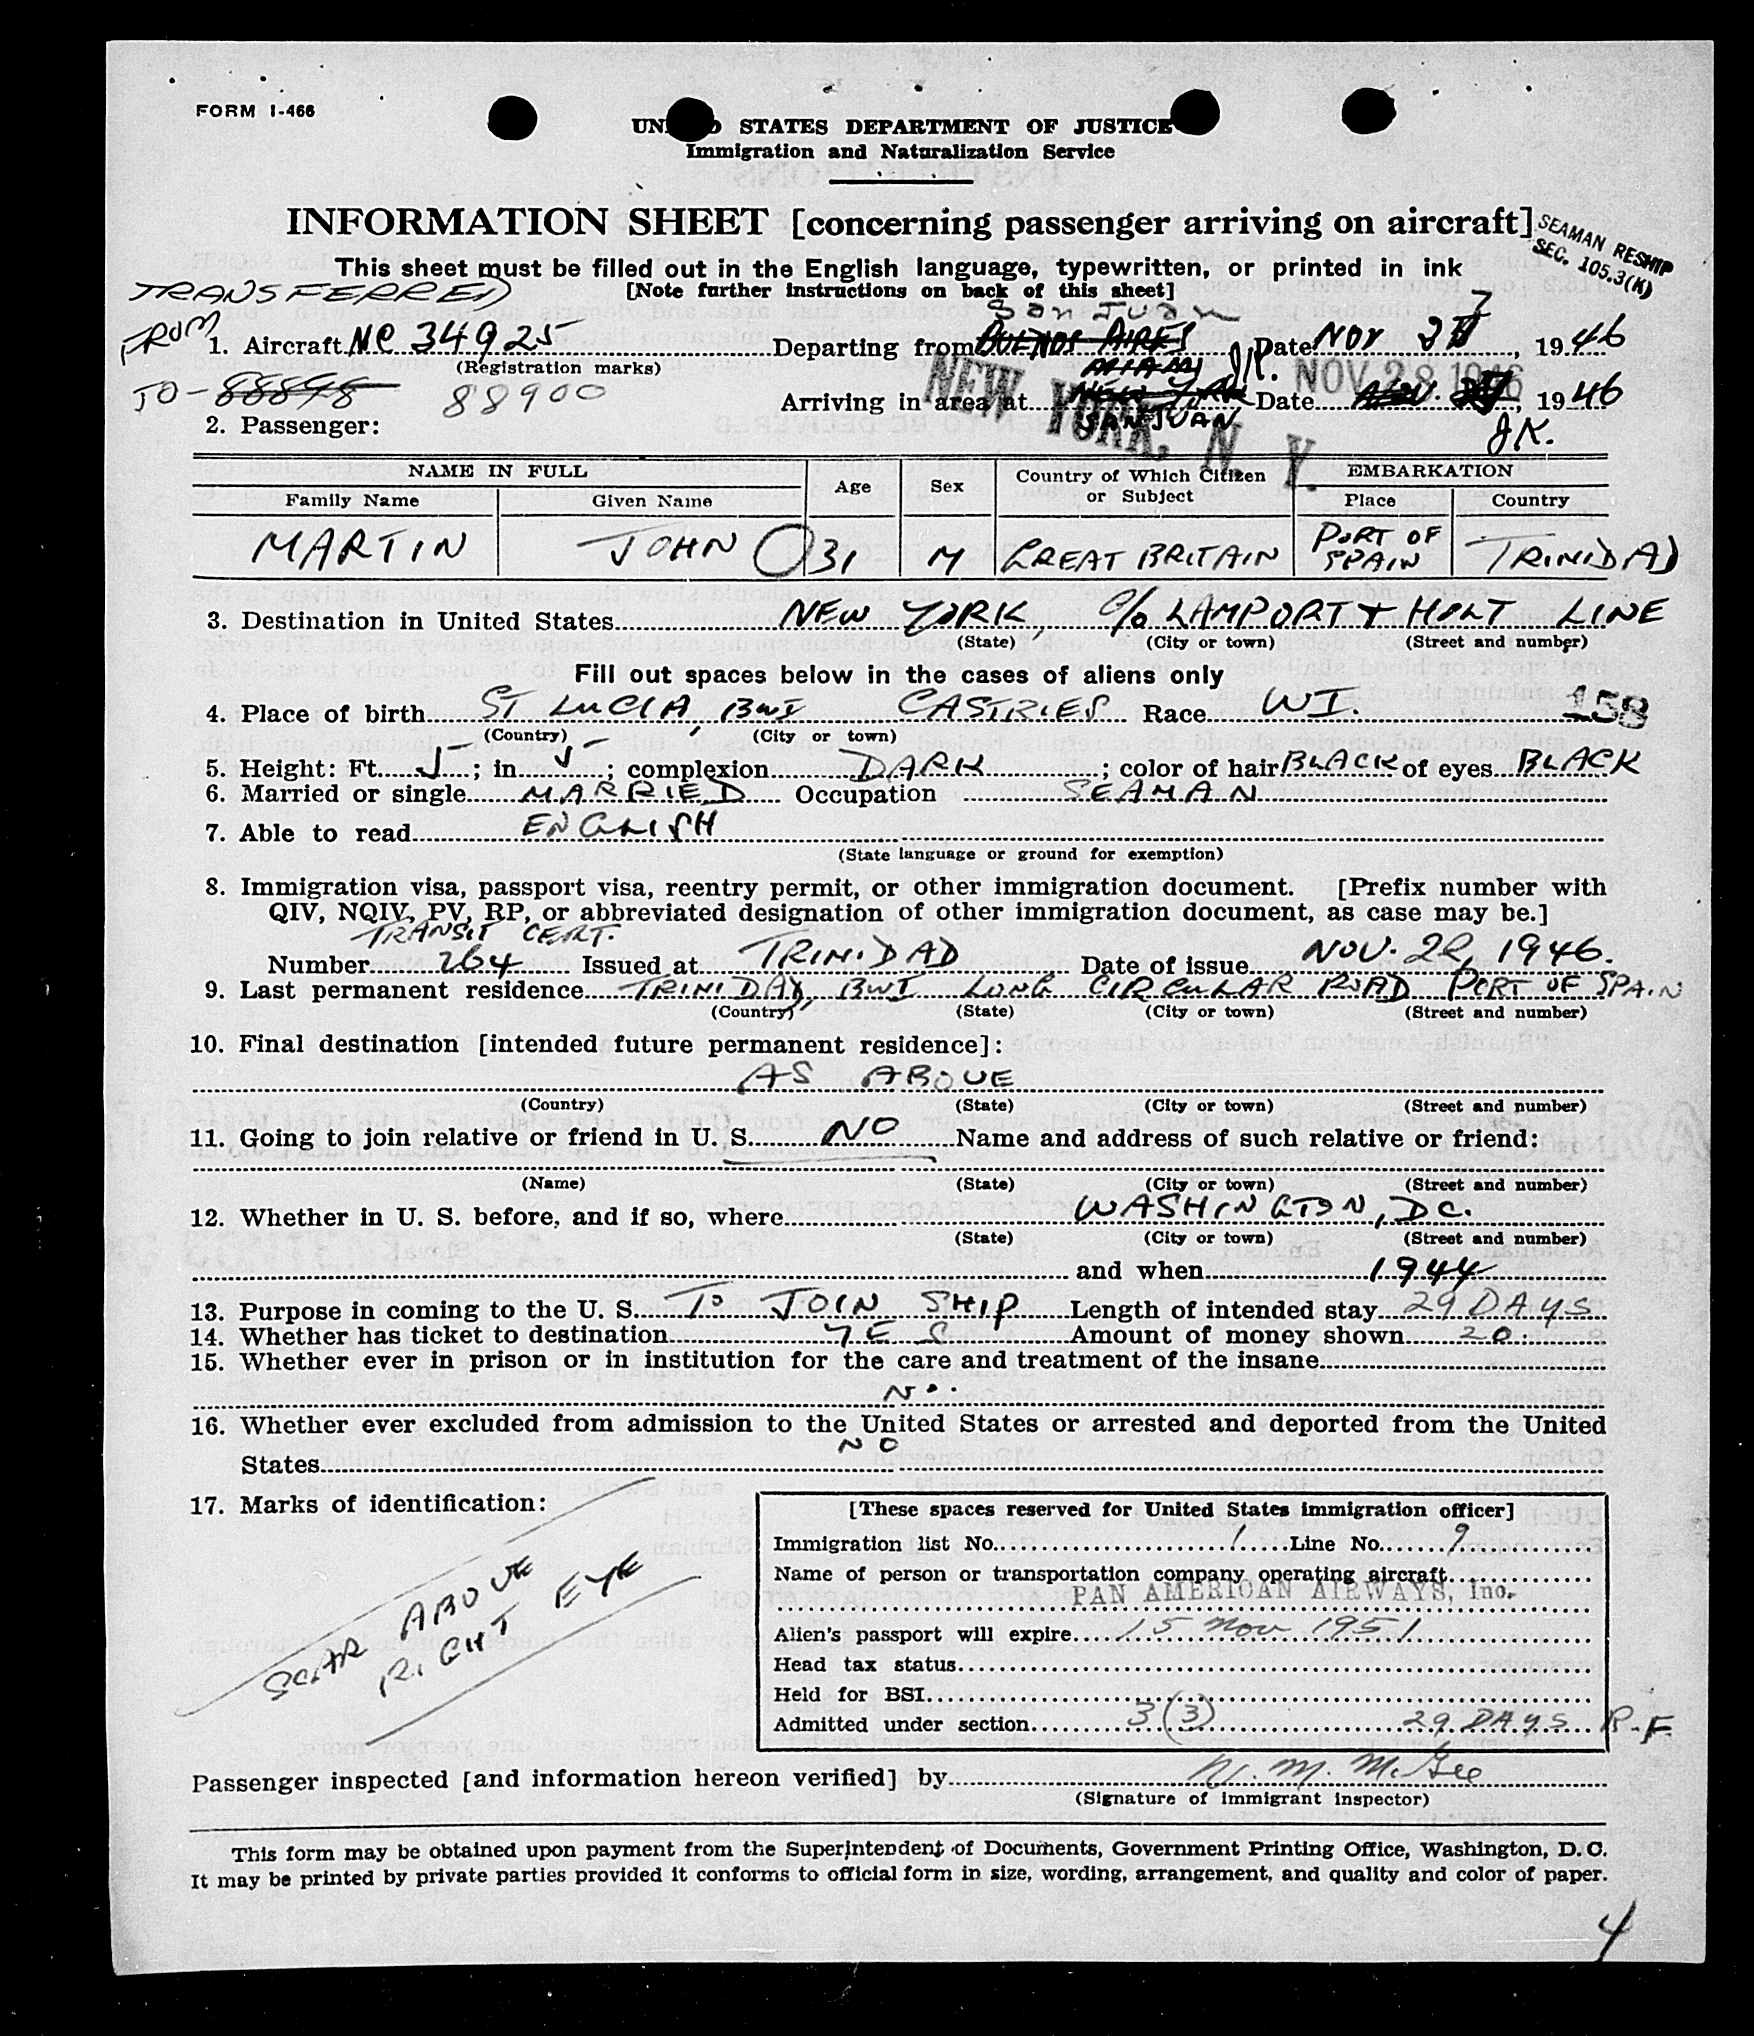 FORM I-466
UNITED STATES DEPARTMENT OF JUSTICE
Immigration and Naturalization Service
INFORMATION SHEET [concerning passenger arriving on aircraft]
SEAMAN RESHIP
SEC. 105.3(K)
This sheet must be filled out in the English language, typewritten, or printed in ink
[Note further instructions on back of this sheet]
TRANSFERRED
San Juan
FROM 1. Aircraft NC 34925 Departing from BUENOS AIRES Date NOV 7, 1946
(Registration marks)
MIAMI J.K. NOV 28 1946
TO - 88898 88900 Arriving in area at NEW YORK Date NOV., 1946
SAN JUAN J.K.
NEW YORK, N. Y.
2. Passenger:
NAME IN FULL Age Sex Country of Which Citizen or Subject EMBARKATION
Family Name Given Name Place Country
MARTIN JOHN 31 M GREAT BRITAIN PORT OF SPAIN TRINIDAD
3. Destination in United States NEW YORK, c/o LAMPORT + HOLT LINE
(State) (City or town) (Street and number)
Fill out spaces below in the cases of aliens only
4. Place of birth ST LUCIA, BWI CASTRIES Race WI. 158
(Country) (City or town)
5. Height: Ft. 5; in. 5; complexion DARK; color of hair BLACK of eyes BLACK
6. Married or single MARRIED Occupation SEAMAN
7. Able to read ENGLISH
(State language or ground for exemption)
8. Immigration visa, passport visa, reentry permit, or other immigration document. [Prefix number with
QIV, NQIV, PV, RP, or abbreviated designation of other immigration document, as case may be.]
TRANSIT CERT.
Number 264 Issued at TRINIDAD Date of issue NOV. 22, 1946.
9. Last permanent residence TRINIDAD, BWI LONG CIRCULAR ROAD PORT OF SPAIN
(Country) (State) (City or town) (Street and number)
10. Final destination [intended future permanent residence]:
AS ABOVE
(Country) (State) (City or town) (Street and number)
11. Going to join relative or friend in U. S. NO Name and address of such relative or friend:
(Name) (State) (City or town) (Street and number)
12. Whether in U. S. before, and if so, where WASHINGTON, DC.
(State) (City or town) (Street and number)
and when 1944
13. Purpose in coming to the U. S. TO JOIN SHIP Length of intended stay 29 DAYS
14. Whether has ticket to destination YES Amount of money shown 20.
15. Whether ever in prison or in institution for the care and treatment of the insane
NO.
16. Whether ever excluded from admission to the United States or arrested and deported from the United
States NO
17. Marks of identification:
SCAR ABOVE
RIGHT EYE
[These spaces reserved for United States immigration officer]
Immigration list No. 1 Line No. 9
Name of person or transportation company operating aircraft
PAN AMERICAN AIRWAYS, Inc.
Alien's passport will expire 15 Nov 1951
Head tax status
Held for BSI
Admitted under section 3(3) 29 DAYS R.F.
Passenger inspected [and information hereon verified] by N. M. McGee
(Signature of immigrant inspector)
This form may be obtained upon payment from the Superintendent of Documents, Government Printing Office, Washington, D. C.
It may be printed by private parties provided it conforms to official form in size, wording, arrangement, and quality and color of paper.
4